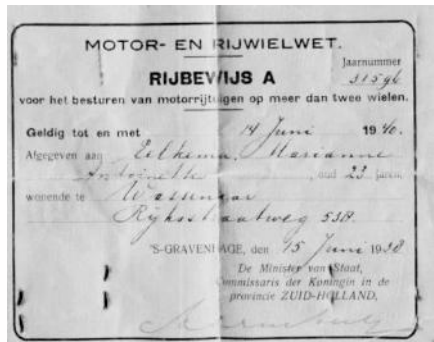 MOTOR- EN RIJWIELWET.
Jaarnummer
RIJBEWIJS A 31596
voor het besturen van motorrijtuigen op meer dan twee wielen.
Geldig tot en met 14 Juni 1940.
Afgegeven aan Eelkema, Marianne
Antoinette, oud 23 jaren,
wonende te Wassenaar
Rijksstraatweg 538.
'S-GRAVENHAGE, den 15 Juni 1938
De Minister van Staat,
Commissaris der Koningin in de
provincie ZUID-HOLLAND,